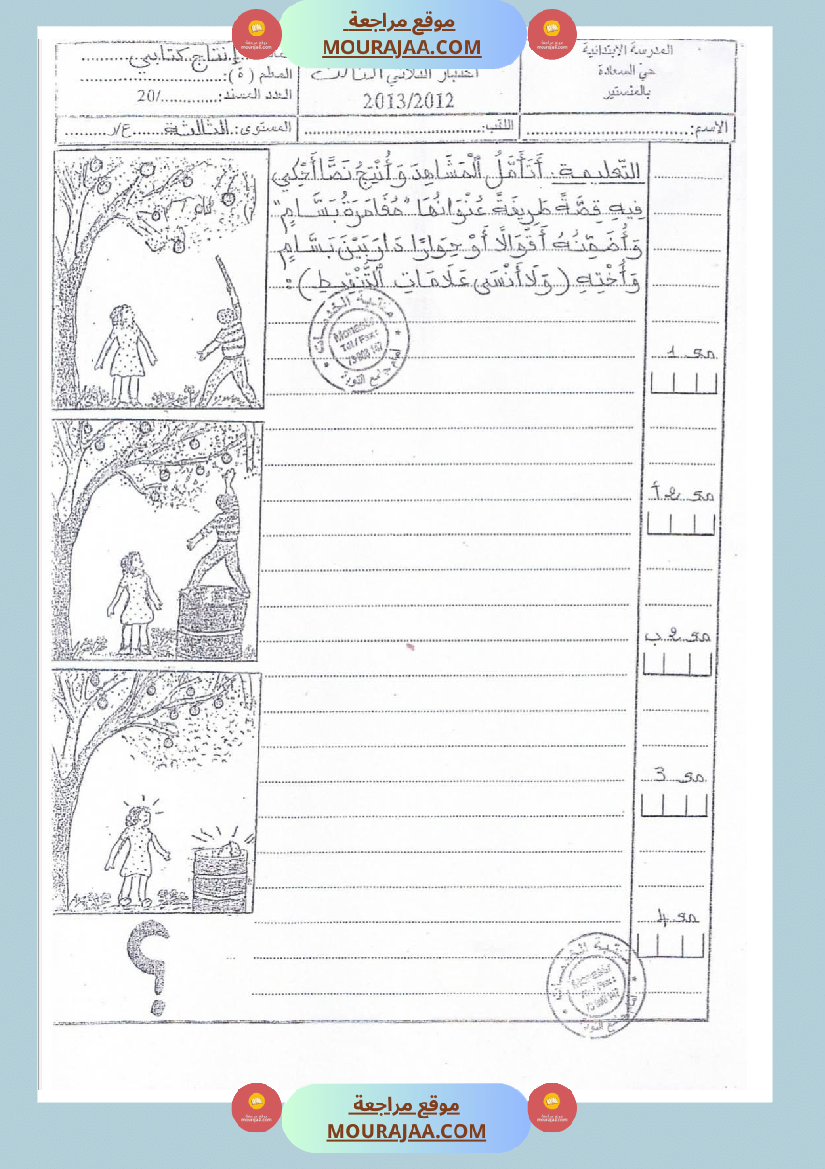 موقع مراجعة
MOURAJAA.COM
المدرسة الابتدائية
حيّ السعادة
بالمنستير
اختبار الثلاثي الثالث
2013/2012
إنتاج كتابي
المعلم (ة):
العدد المسند:............/20
الاسم:
اللقب:
المستوى: الثالثة
التّعليمة: أَتَأَمَّلُ الْمَشَاهِدَ وَأُنْتِجُ نَصًّا أَحْكِي
فِيهِ قِصَّةً طَرِيفَةً عُنْوَانُهَا "مُغَامَرَةُ بَسَّامٍ"
وَأُضَمِّنُهُ أَقْوَالًا أَوْ حِوَارًا دَارَ بَيْنَ بَسَّامٍ
وَأُخْتِهِ (وَلَا أَنْسَى عَلَامَاتِ التَّنْقِيطِ):
مع 1
مع 2 أ
مع 2 ب
مع 3
مع 4
؟
مكتبة الخدمات
Monastir
Tel / Fax:
مكتبة الخدمات
Monastir
موقع مراجعة
MOURAJAA.COM